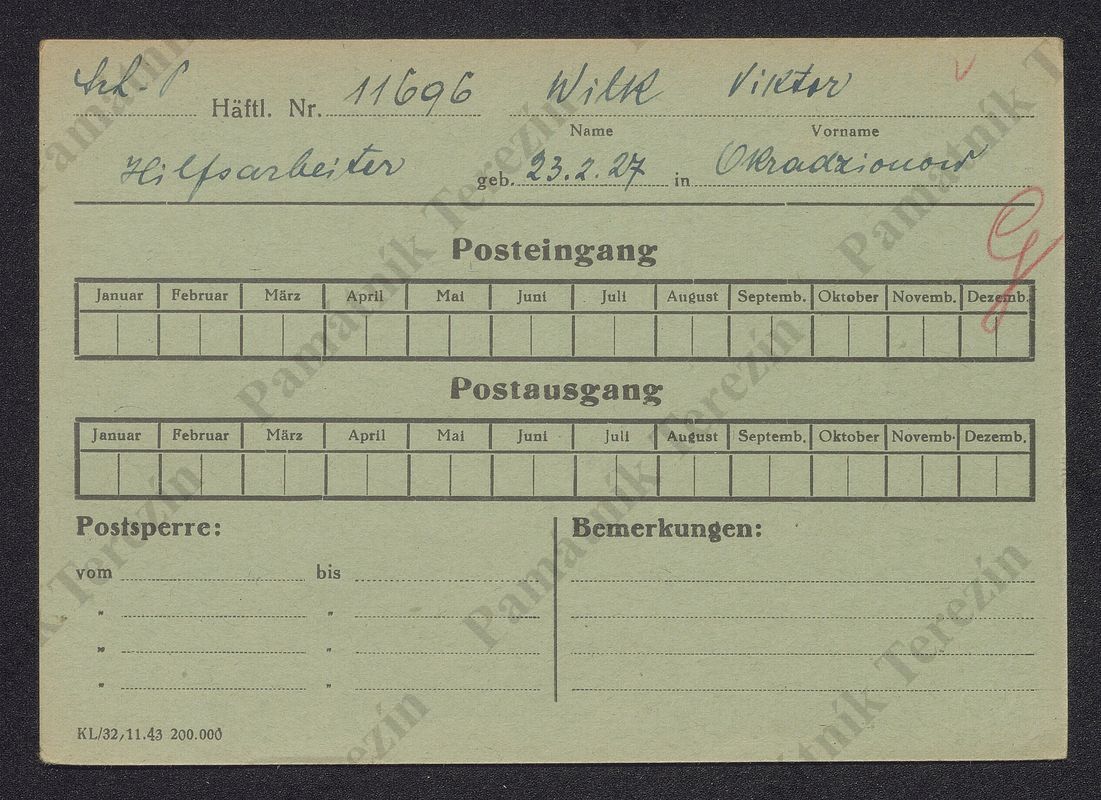 Häftl. Nr. 11696 Wilk Viktor
Name Vorname
Hilfsarbeiter geb. 23.2.27 in Okradzionow
Posteingang
Januar Februar März April Mai Juni Juli August Septemb. Oktober Novemb. Dezemb.
Postausgang
Januar Februar März April Mai Juni Juli August Septemb. Oktober Novemb. Dezemb.
Postsperre: Bemerkungen:
vom bis
" "
" "
" "
KL/32, 11.43 200.000
Památník Terezín